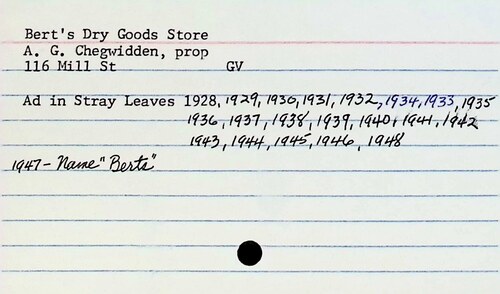 Bert's Dry Goods Store
A. G. Chegwidden, prop
116 Mill St GV
Ad in Stray Leaves 1928, 1929, 1930, 1931, 1932, 1934, 1933, 1935
1936, 1937, 1938, 1939, 1940, 1941, 1942
1943, 1944, 1945, 1946, 1948
1947 - Name "Berts"